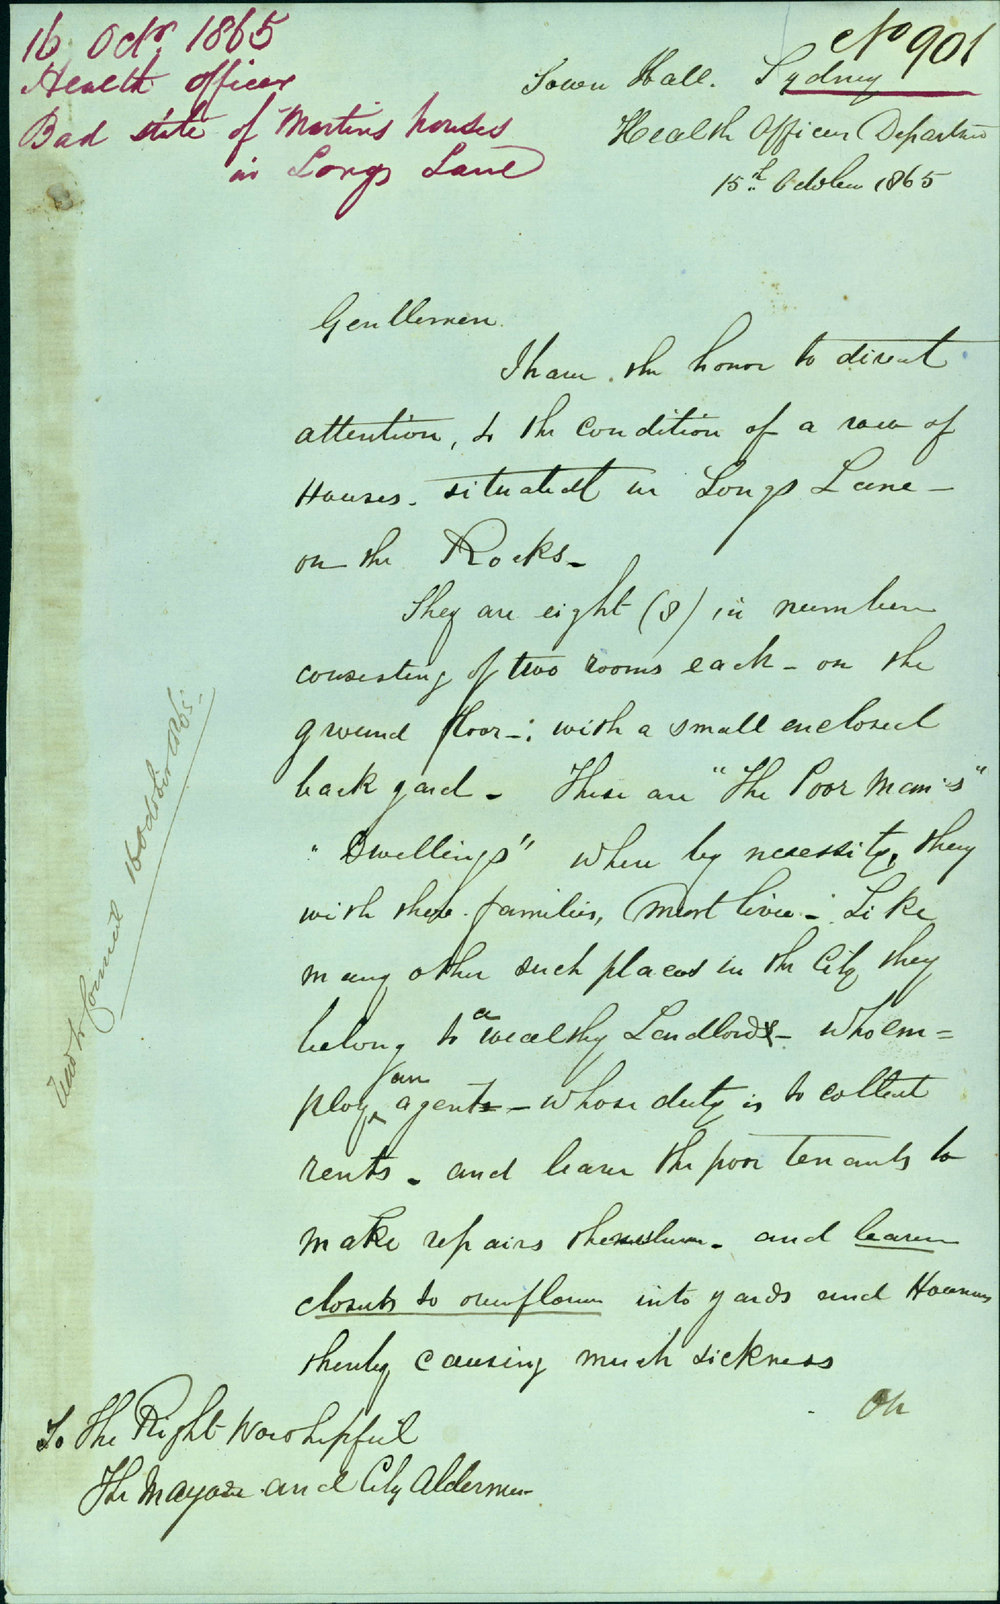 16 Octr. 1865
Health officer
Bad state of Martins houses
in Longs Lane
No 901
Town Hall. Sydney
Health Officers Department
15th October 1865
Gentlemen.
I have the honor to direct
attention, to the condition of a row of
Houses. situated in Longs Lane –
on the Rocks –
They are eight (8) in number
consisting of two rooms each – on the
ground floor –; with a small enclosed
back yard – These are "The Poor Man's"
"Dwellings" where by necessity, they
with their families, must live –. Like
many other such places in the City they
belong to a wealthy Landlord – who em=
ploy an agent – whose duty is to collect
rents – and leave the poor tenants to
make repairs themselves – and leave
closets to overflow into yards and Houses
thereby causing much sickness
On
To The Right Worshipful
The Mayor and City Aldermen
16 October 1865